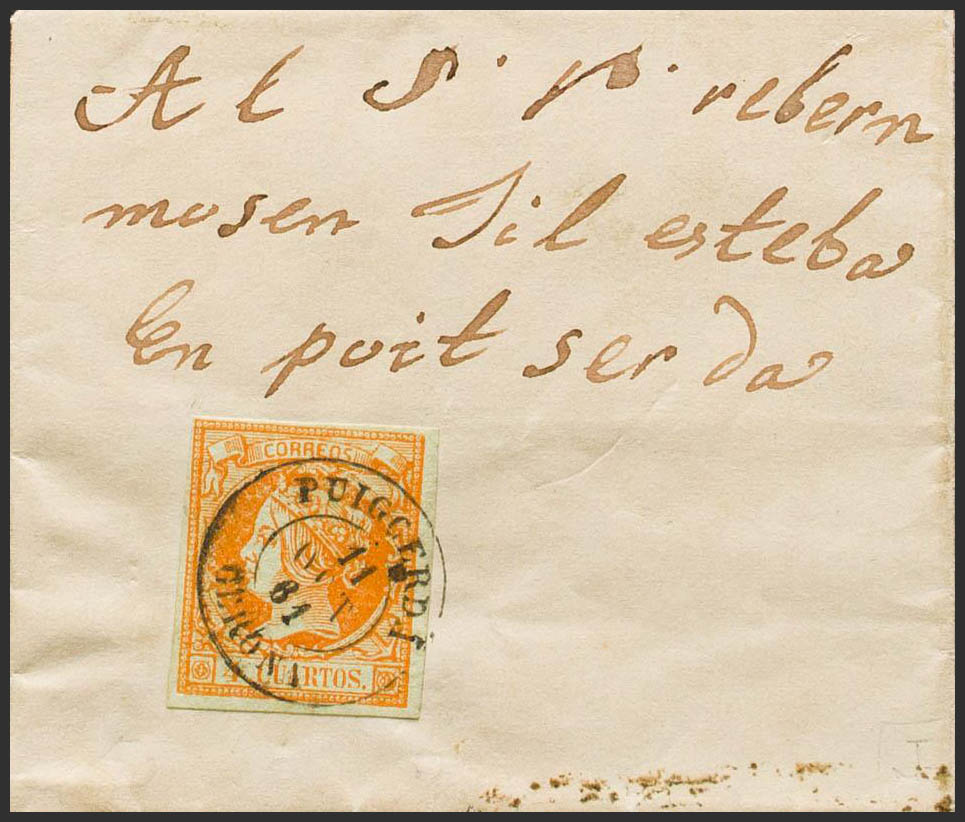 Al S. P. rebern
mosen Jil esteba
En poit ser da
CORREOS
PUIGCERDÁ
11
OCT
61
4 CUARTOS.